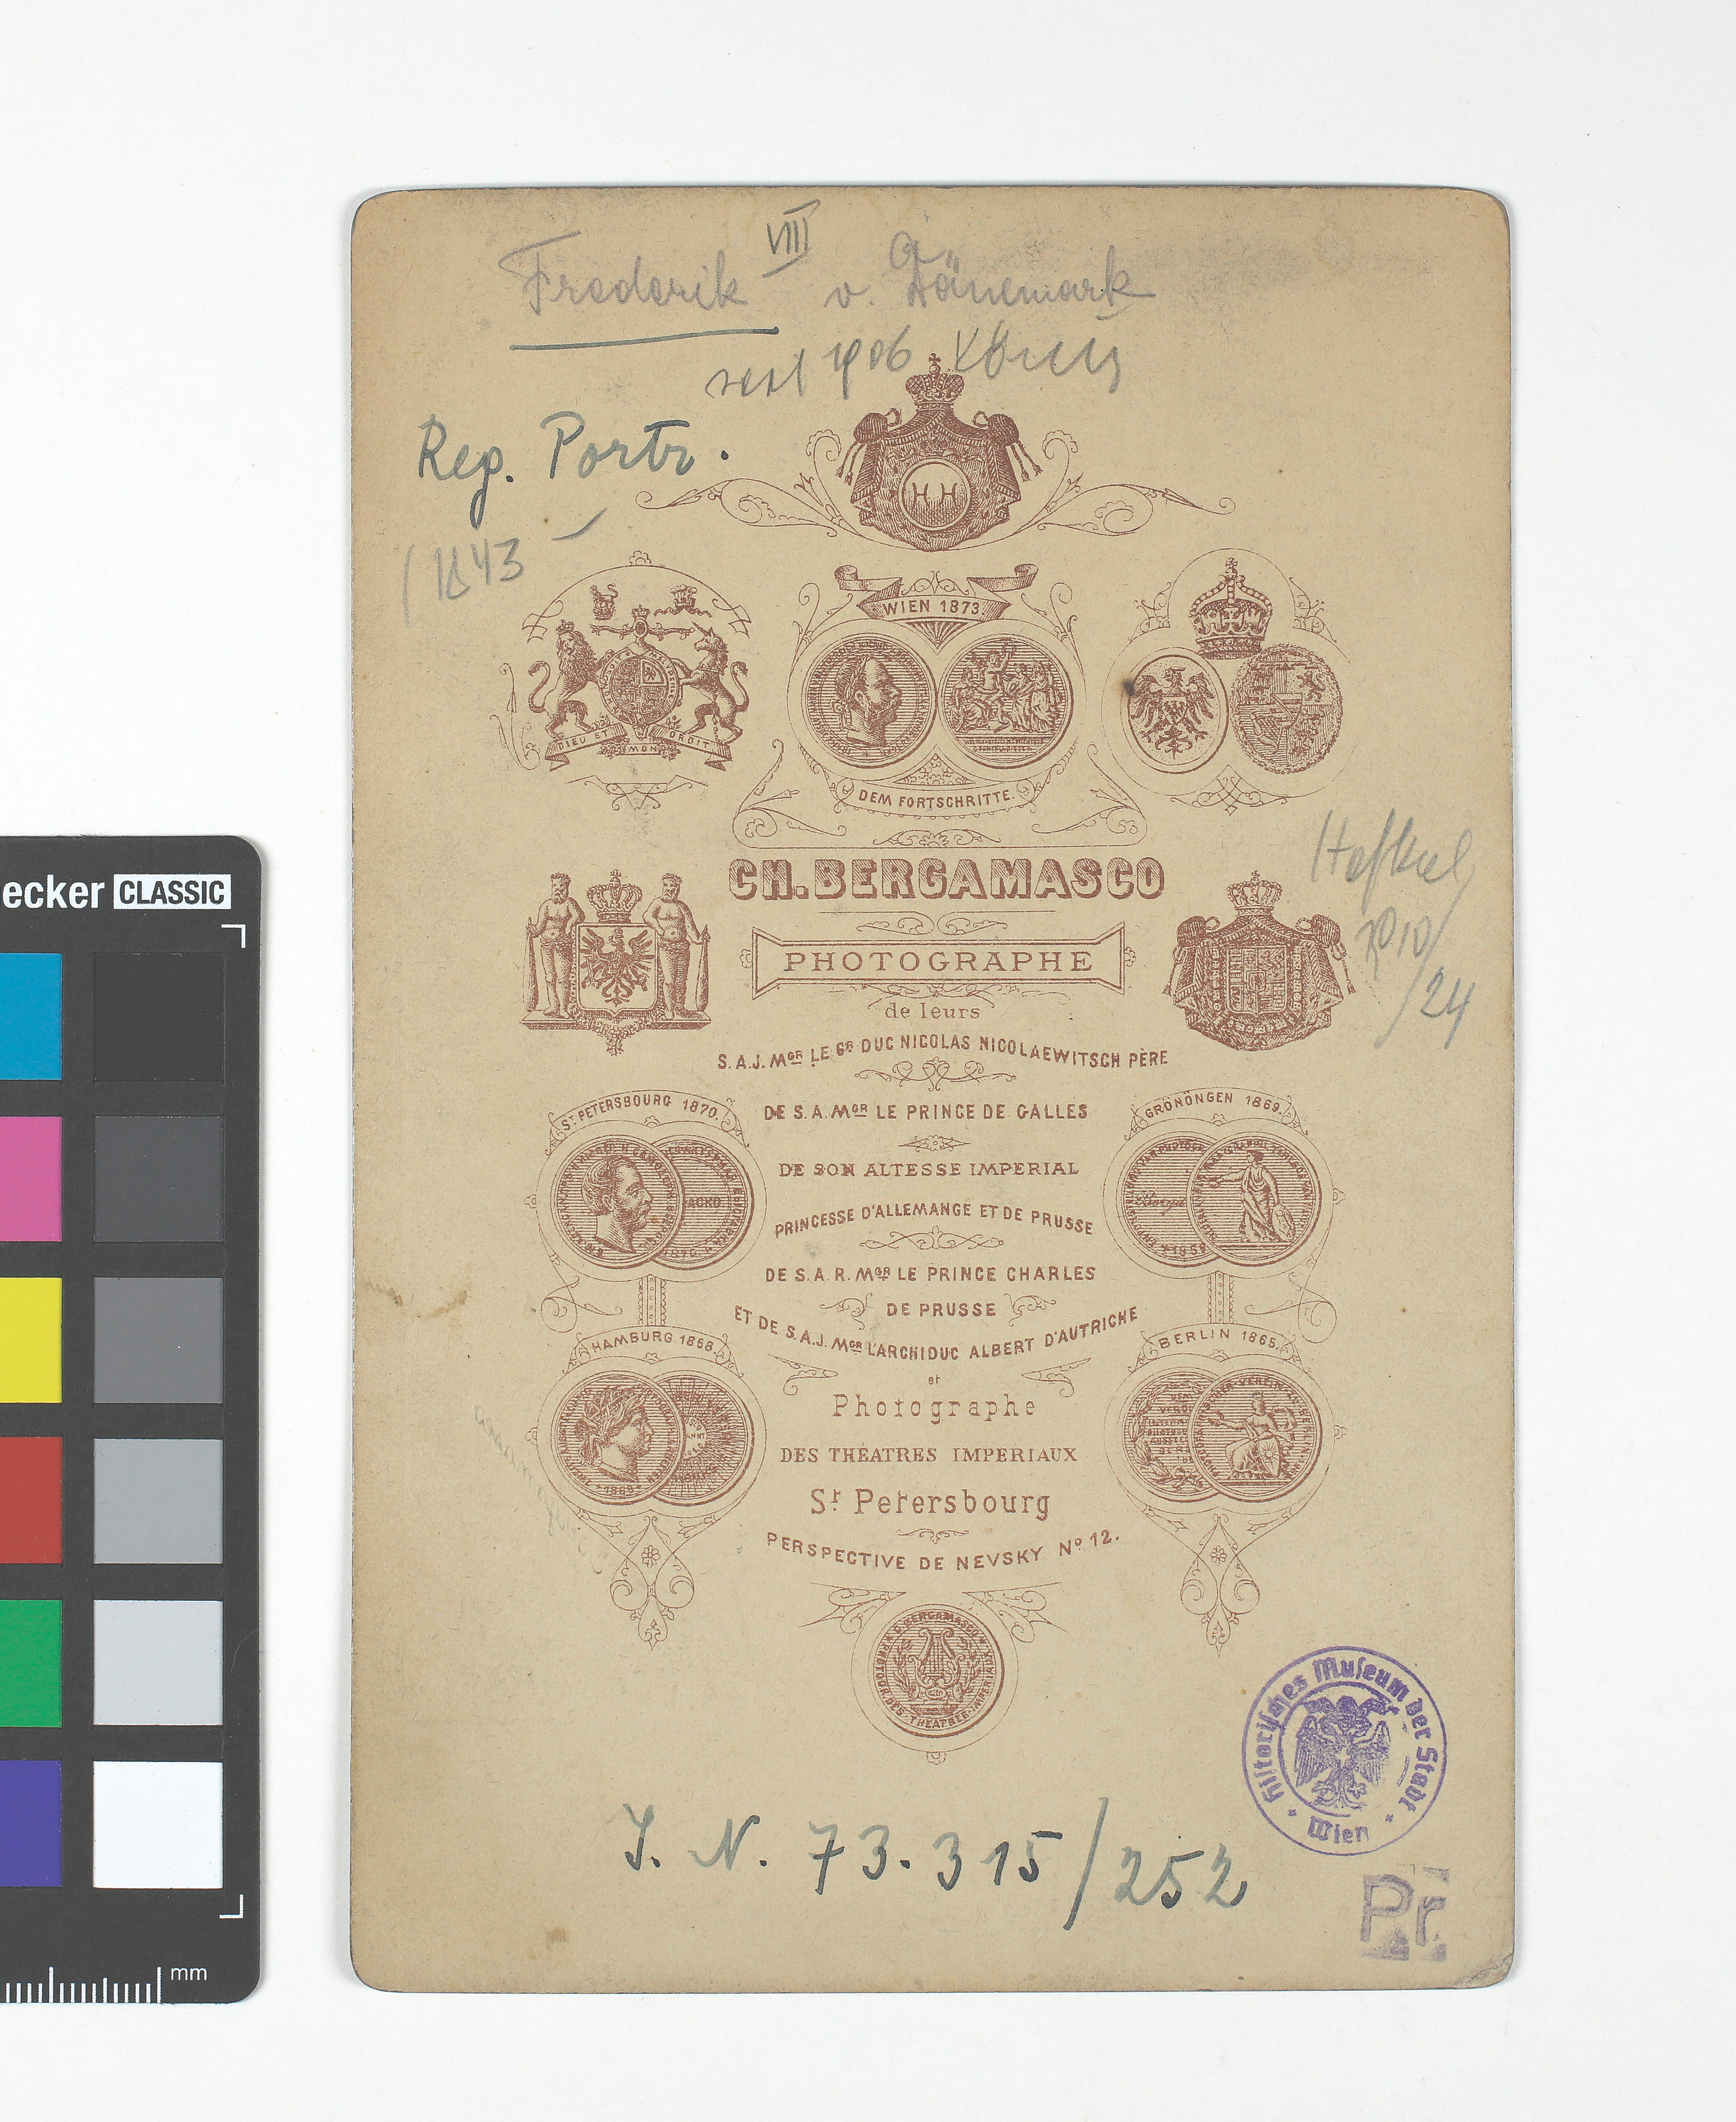 Frederik VIII v. Dänemark
seit 1906 König
Reg. Portr.
(1843 –
H H
WIEN 1873.
DIEU ET MON DROIT
DEM FORTSCHRITTE.
CH. BERGAMASCO
PHOTOGRAPHE
de leurs
S.A.J. MGR LE GR DUC NICOLAS NICOLAEWITSCH PÈRE
DE S.A. MGR LE PRINCE DE GALLES
DE SON ALTESSE IMPERIAL
PRINCESSE D'ALLEMANGE ET DE PRUSSE
DE S.A.R. MGR LE PRINCE CHARLES
DE PRUSSE
ET DE S.A.J. MGR L'ARCHIDUC ALBERT D'AUTRICHE
et
Photographe
DES THÉATRES IMPERIAUX
St Petersbourg
PERSPECTIVE DE NEVSKY No 12.
ST. PETERSBOURG 1870.
GRÖNÖNGEN 1869.
HAMBURG 1868.
1868
BERLIN 1865.
C. BERGAMASCO
PHOTOGR. DES THEATRES IMPERIAUX
/24
Historisches Museum der Stadt Wien
J. N. 73.315/252
Pr
ecker CLASSIC
mm